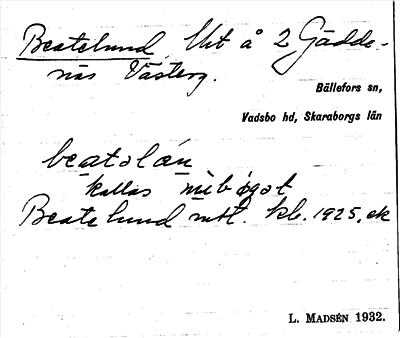 Beatelund Utt å 2 Gädde-
näs Västerg.
Bällefors sn,
Vadsbo hd, Skaraborgs län
beatolán
kallas
Beatelund mtl. kb. 1925, ek
L. MADSÉN 1932.